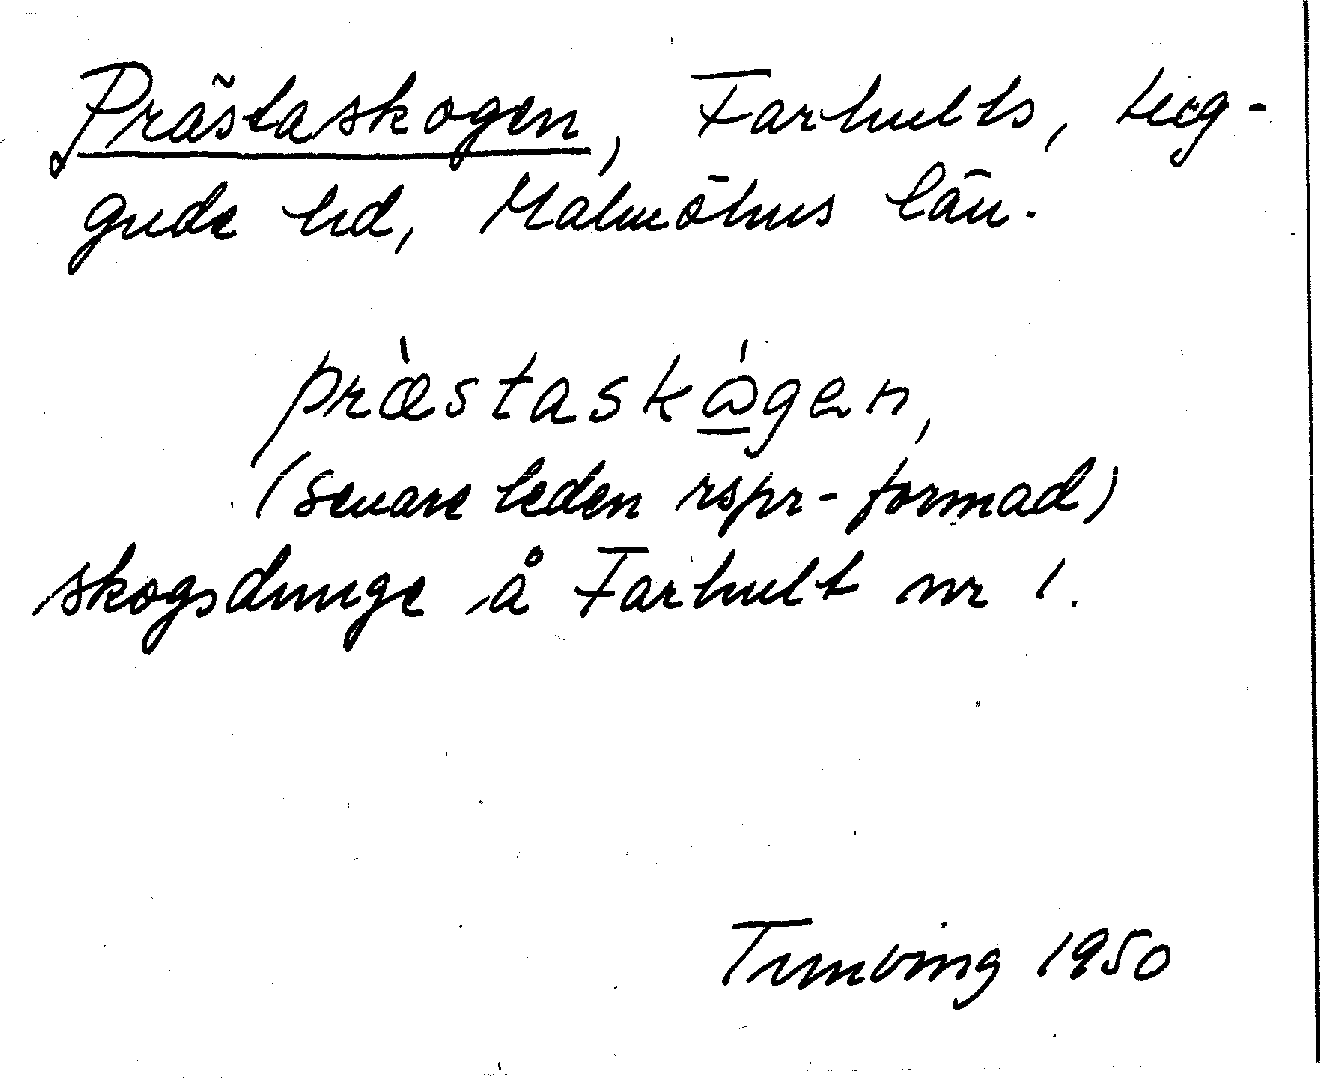 Prästaskogen, Farhults, Lug-
gude hd, Malmöhus län.
præ̀staskågen,
(senare leden rspr-formad)
skogsdunge å Farhult nr 1.
1950